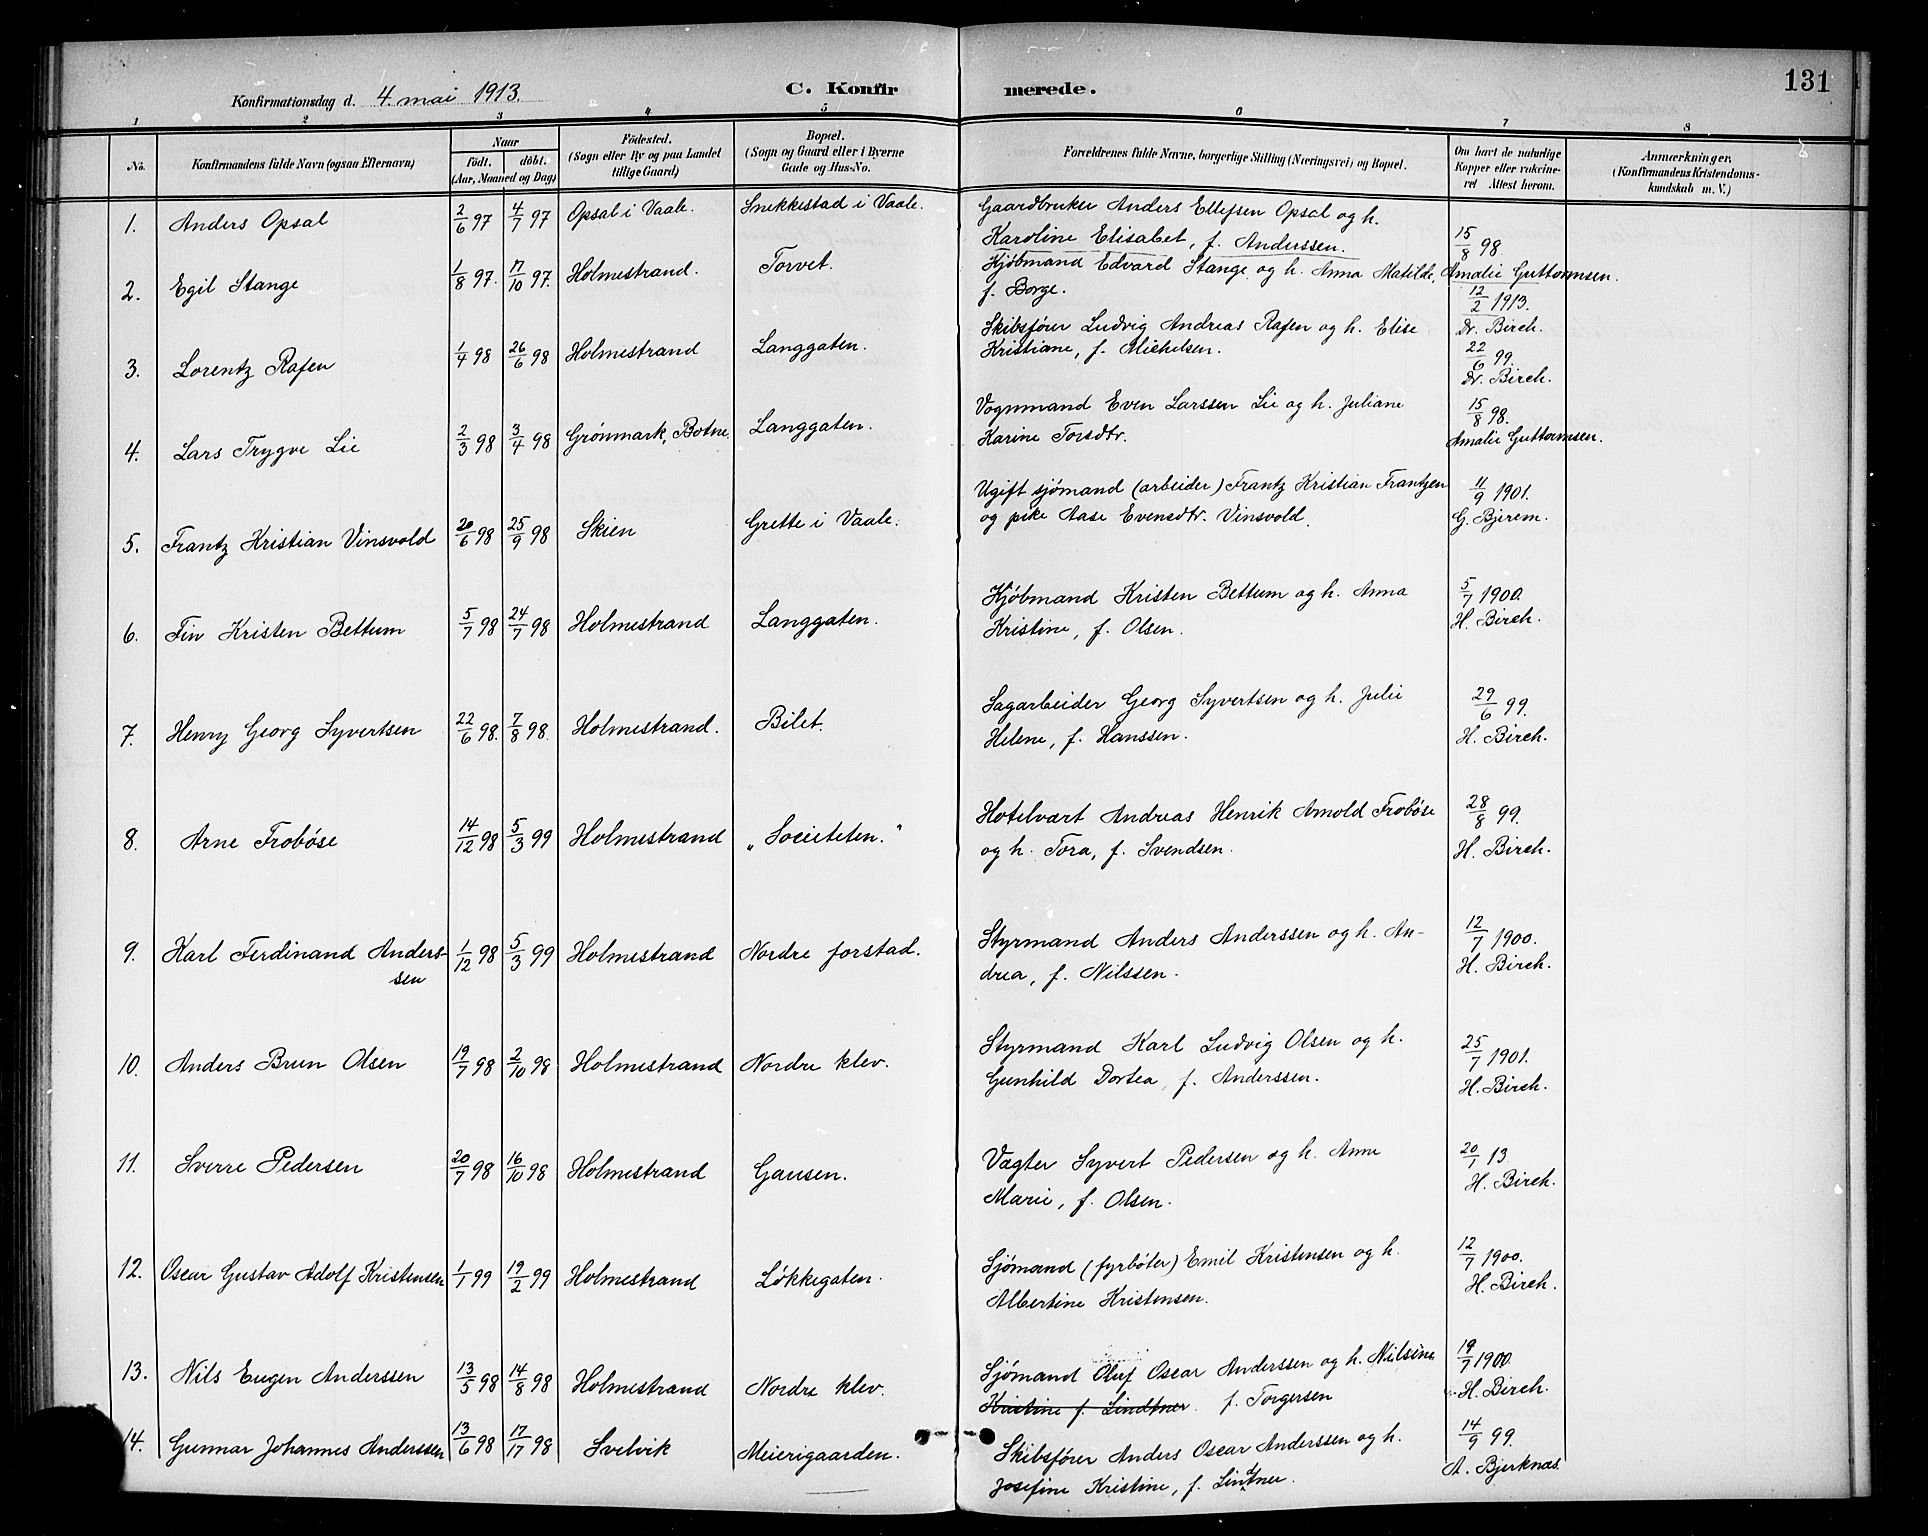 131
Konfirmationsdag d. 4. mai 1913.
C. Konfirmerede.
1 2 3 4 5 6 7 8
No.
Konfirmandens fulde Navn (ogsaa Efternavn)
Naar
födt. döbt.
(Aar, Maaned og Dag)
Födested.
(Sogn eller By og paa Landet
tillige Gaard)
Bopæl.
(Sogn og Gaard eller i Byerne
Gade og Hus-No.
Forældrenes fulde Navne, borgerlige Stilling (Næringsvei) og Bopæl.
Om havt de naturlige
Kopper eller vakcine-
ret Attest herom.
Anmærkninger,
(Konfirmandens Kristendoms-
kundskab m. V.)
1. Anders Opsal 2/6 97 4/7 97 Opsal i Vaale. Snekkestad i Vaale. Gaardbruker Anders Ellefsen Opsal og h.
Karoline Elisabet, f. Anderssen. 15/8 98
Amalie Guttormsen.
2. Egil Stange 1/8 97. 17/10 97. Holmestrand. Torvet. Kjöbmand Edvard Stange og h. Anna Matilde,
f. Borge. 12/2 1913.
Dr. Birch.
3. Lorentz Rafen 1/4 98 26/6 98 Holmestrand Langgaten. Skibsförer Ludvig Andreas Rafen og h. Elise
Kristiane, f. Michelsen. 22/6 99.
Dr. Birch.
4. Lars Trygve Lie 2/3 98 3/4 98 Grönmark, Botne. Langgaten. Vognmand Even Larssen Lie og h. Juliane
Karine Torsdtr. 15/8 98.
Amalie Guttormsen.
5. Frantz Kristian Vinsvold 20/6 98 25/9 98 Skien Grette i Vaale. Ugift sjömand (arbeider) Frantz Kristian Frantzen
og pike Aase Evensdtr. Vinsvold. 11/9 1901.
G. Bjerem.
6. Fin Kristen Bettum 5/7 98 24/7 98 Holmestrand Langgaten. Kjöbmand Kristen Bettum og h. Anna
Kristine, f. Olsen. 5/7 1900.
H. Birch.
7. Henry Georg Syvertsen 22/6 98. 7/8 98. Holmestrand. Bilet. Sagarbeider Georg Syvertsen og h. Julie
Helene, f. Hanssen. 29/6 99.
H. Birch.
8. Arne Froböse 14/12 98 5/3 99 Holmestrand „Societeten.“ Hotelvært Andreas Henrik Arnold Froböse
og h. Tora, f. Svendsen. 28/8 99.
H. Birch.
9. Karl Ferdinand Anders-
sen 1/12 98 5/3 99 Holmestrand Nordre forstad. Styrmand Anders Anderssen og h. An-
drea, f. Nilssen. 12/7 1900.
H. Birch.
10. Anders Brun Olsen 19/7 98 2/10 98 Holmestrand Nordre klev. Styrmand Karl Ludvig Olsen og h.
Gunhild Dortea, f. Anderssen. 25/7 1901.
H. Birch.
11. Sverre Pedersen 20/7 98 16/10 98 Holmestrand Gausen. Vægter Syvert Pedersen og h. Anne
Marie, f. Olsen. 20/1 13.
H. Birch.
12. Oscar Gustav Adolf Kristensen 1/1 99 19/2 99 Holmestrand Lökkegaten. Sjömand (fyrböter) Emil Kristensen og h.
Albertine Kristensen. 12/7 1900.
H. Birch.
13. Nils Eugen Anderssen 13/5 98 14/8 98 Holmestrand Nordre klev. Sjömand Oluf Oscar Anderssen og h. Nilsine
Kristine f. Lindtner. f. Torgersen 19/7 1900.
H. Birch.
14. Gunnar Johannes Anderssen 13/6 98 17/17 98 Svelvik Meierigaarden. Skibsförer Anders Oscar Anderssen og h.
Josefine Kristine, f. Lindtner. 14/9 99.
A. Bjerknæs.